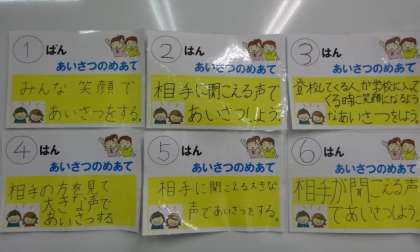 ① ぱん
あいさつのめあて
みんな 笑顔で
あいさつをする。
② はん
あいさつのめあて
相手に聞こえる声で
あいさつしよう。
③ はん
あいさつのめあて
登校してくる人が学校に入って
くる時に笑顔になるよう
なあいさつをしよう。
④ はん
あいさつのめあて
相手の方を見て
大きな声で
あいさつする
⑤ はん
あいさつのめあて
相手に聞こえる大きな
声であいさつをする。
⑥ はん
あいさつのめあて
相手が聞こえる声
であいさつしよう